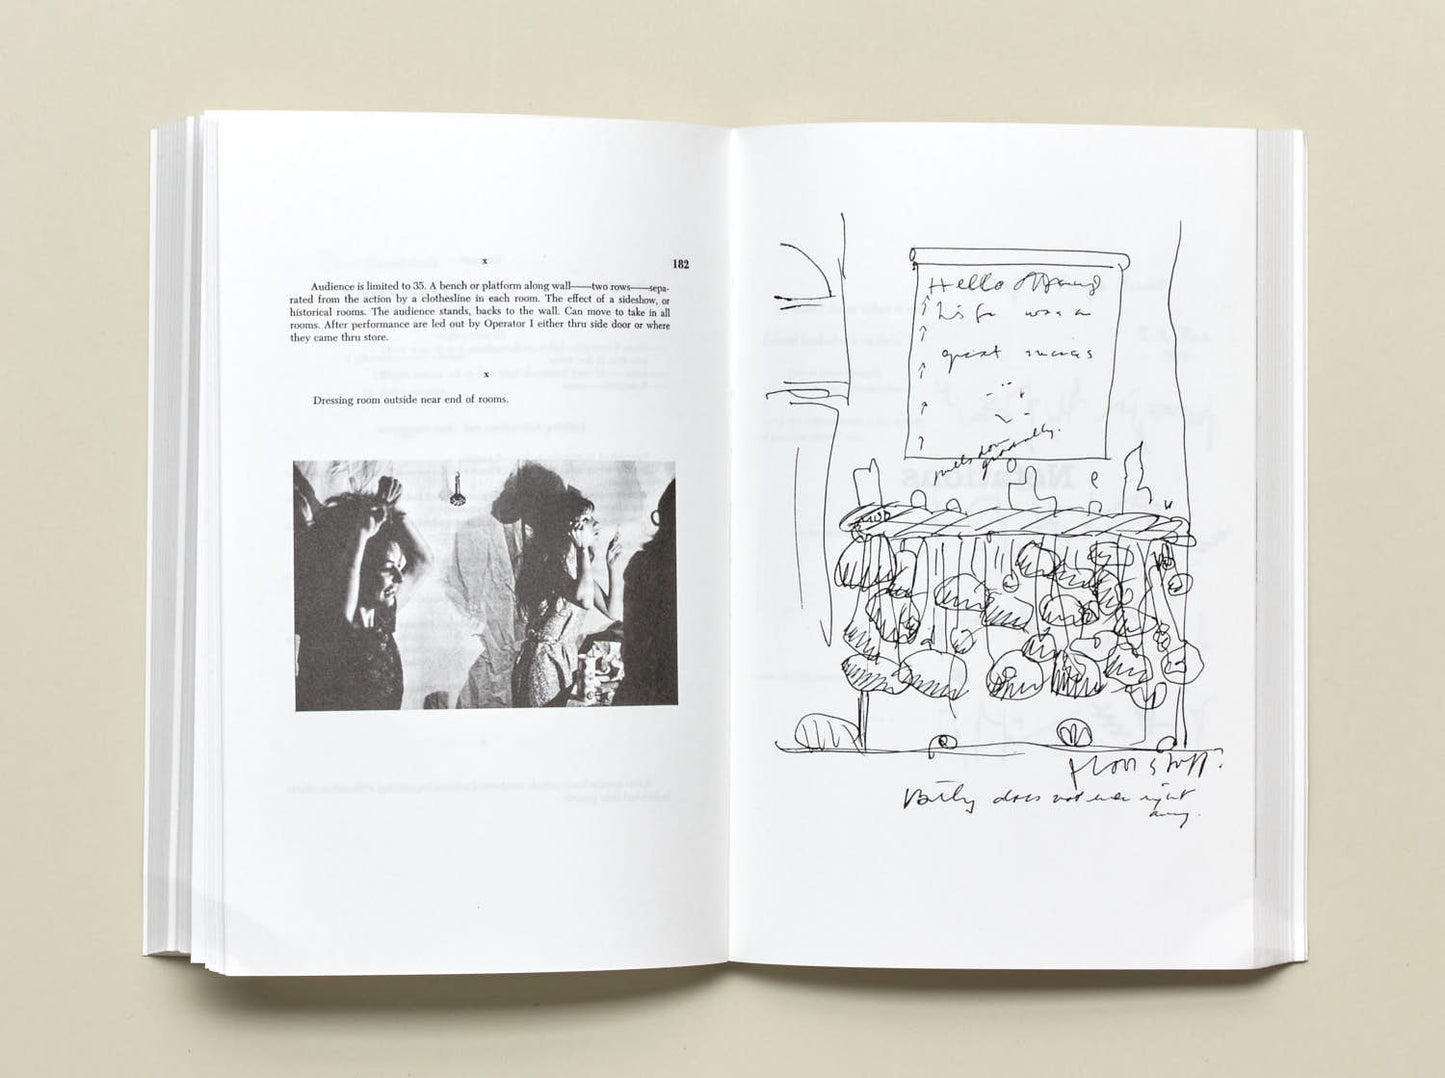 x
182
Audience is limited to 35. A bench or platform along wall——two rows——sepa-
rated from the action by a clothesline in each room. The effect of a sideshow, or
historical rooms. The audience stands, backs to the wall. Can move to take in all
rooms. After performance are led out by Operator 1 either thru side door or where
they came thru store.
x
Dressing room outside near end of rooms.
Hello
was a
great
pulls down
gradually.
floor stuff.
does not
right
away.